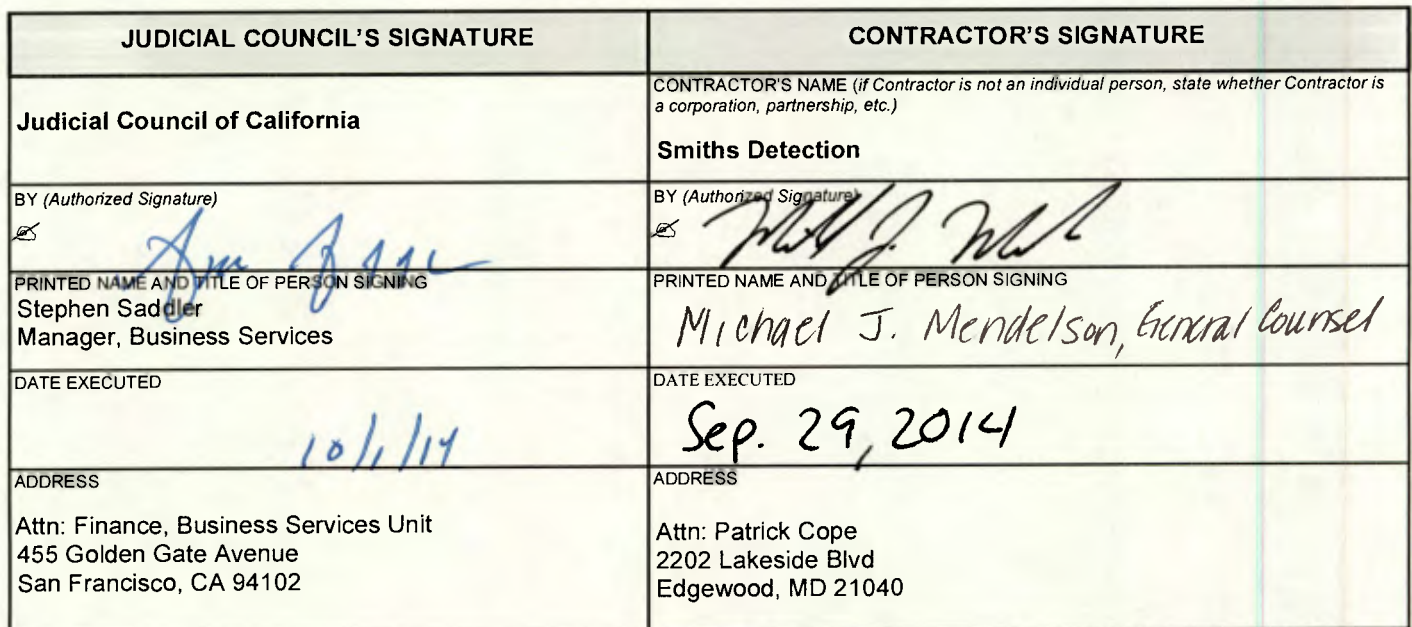 JUDICIAL COUNCIL'S SIGNATURE
CONTRACTOR'S SIGNATURE
Judicial Council of California
CONTRACTOR'S NAME (if Contractor is not an individual person, state whether Contractor is
a corporation, partnership, etc.)
Smiths Detection
BY (Authorized Signature)
BY (Authorized Signature)
PRINTED NAME AND TITLE OF PERSON SIGNING
Stephen Saddler
Manager, Business Services
PRINTED NAME AND TITLE OF PERSON SIGNING
Michael J. Mendelson, General Counsel
DATE EXECUTED
10/1/14
DATE EXECUTED
Sep. 29, 2014
ADDRESS
Attn: Finance, Business Services Unit
455 Golden Gate Avenue
San Francisco, CA 94102
ADDRESS
Attn: Patrick Cope
2202 Lakeside Blvd
Edgewood, MD 21040